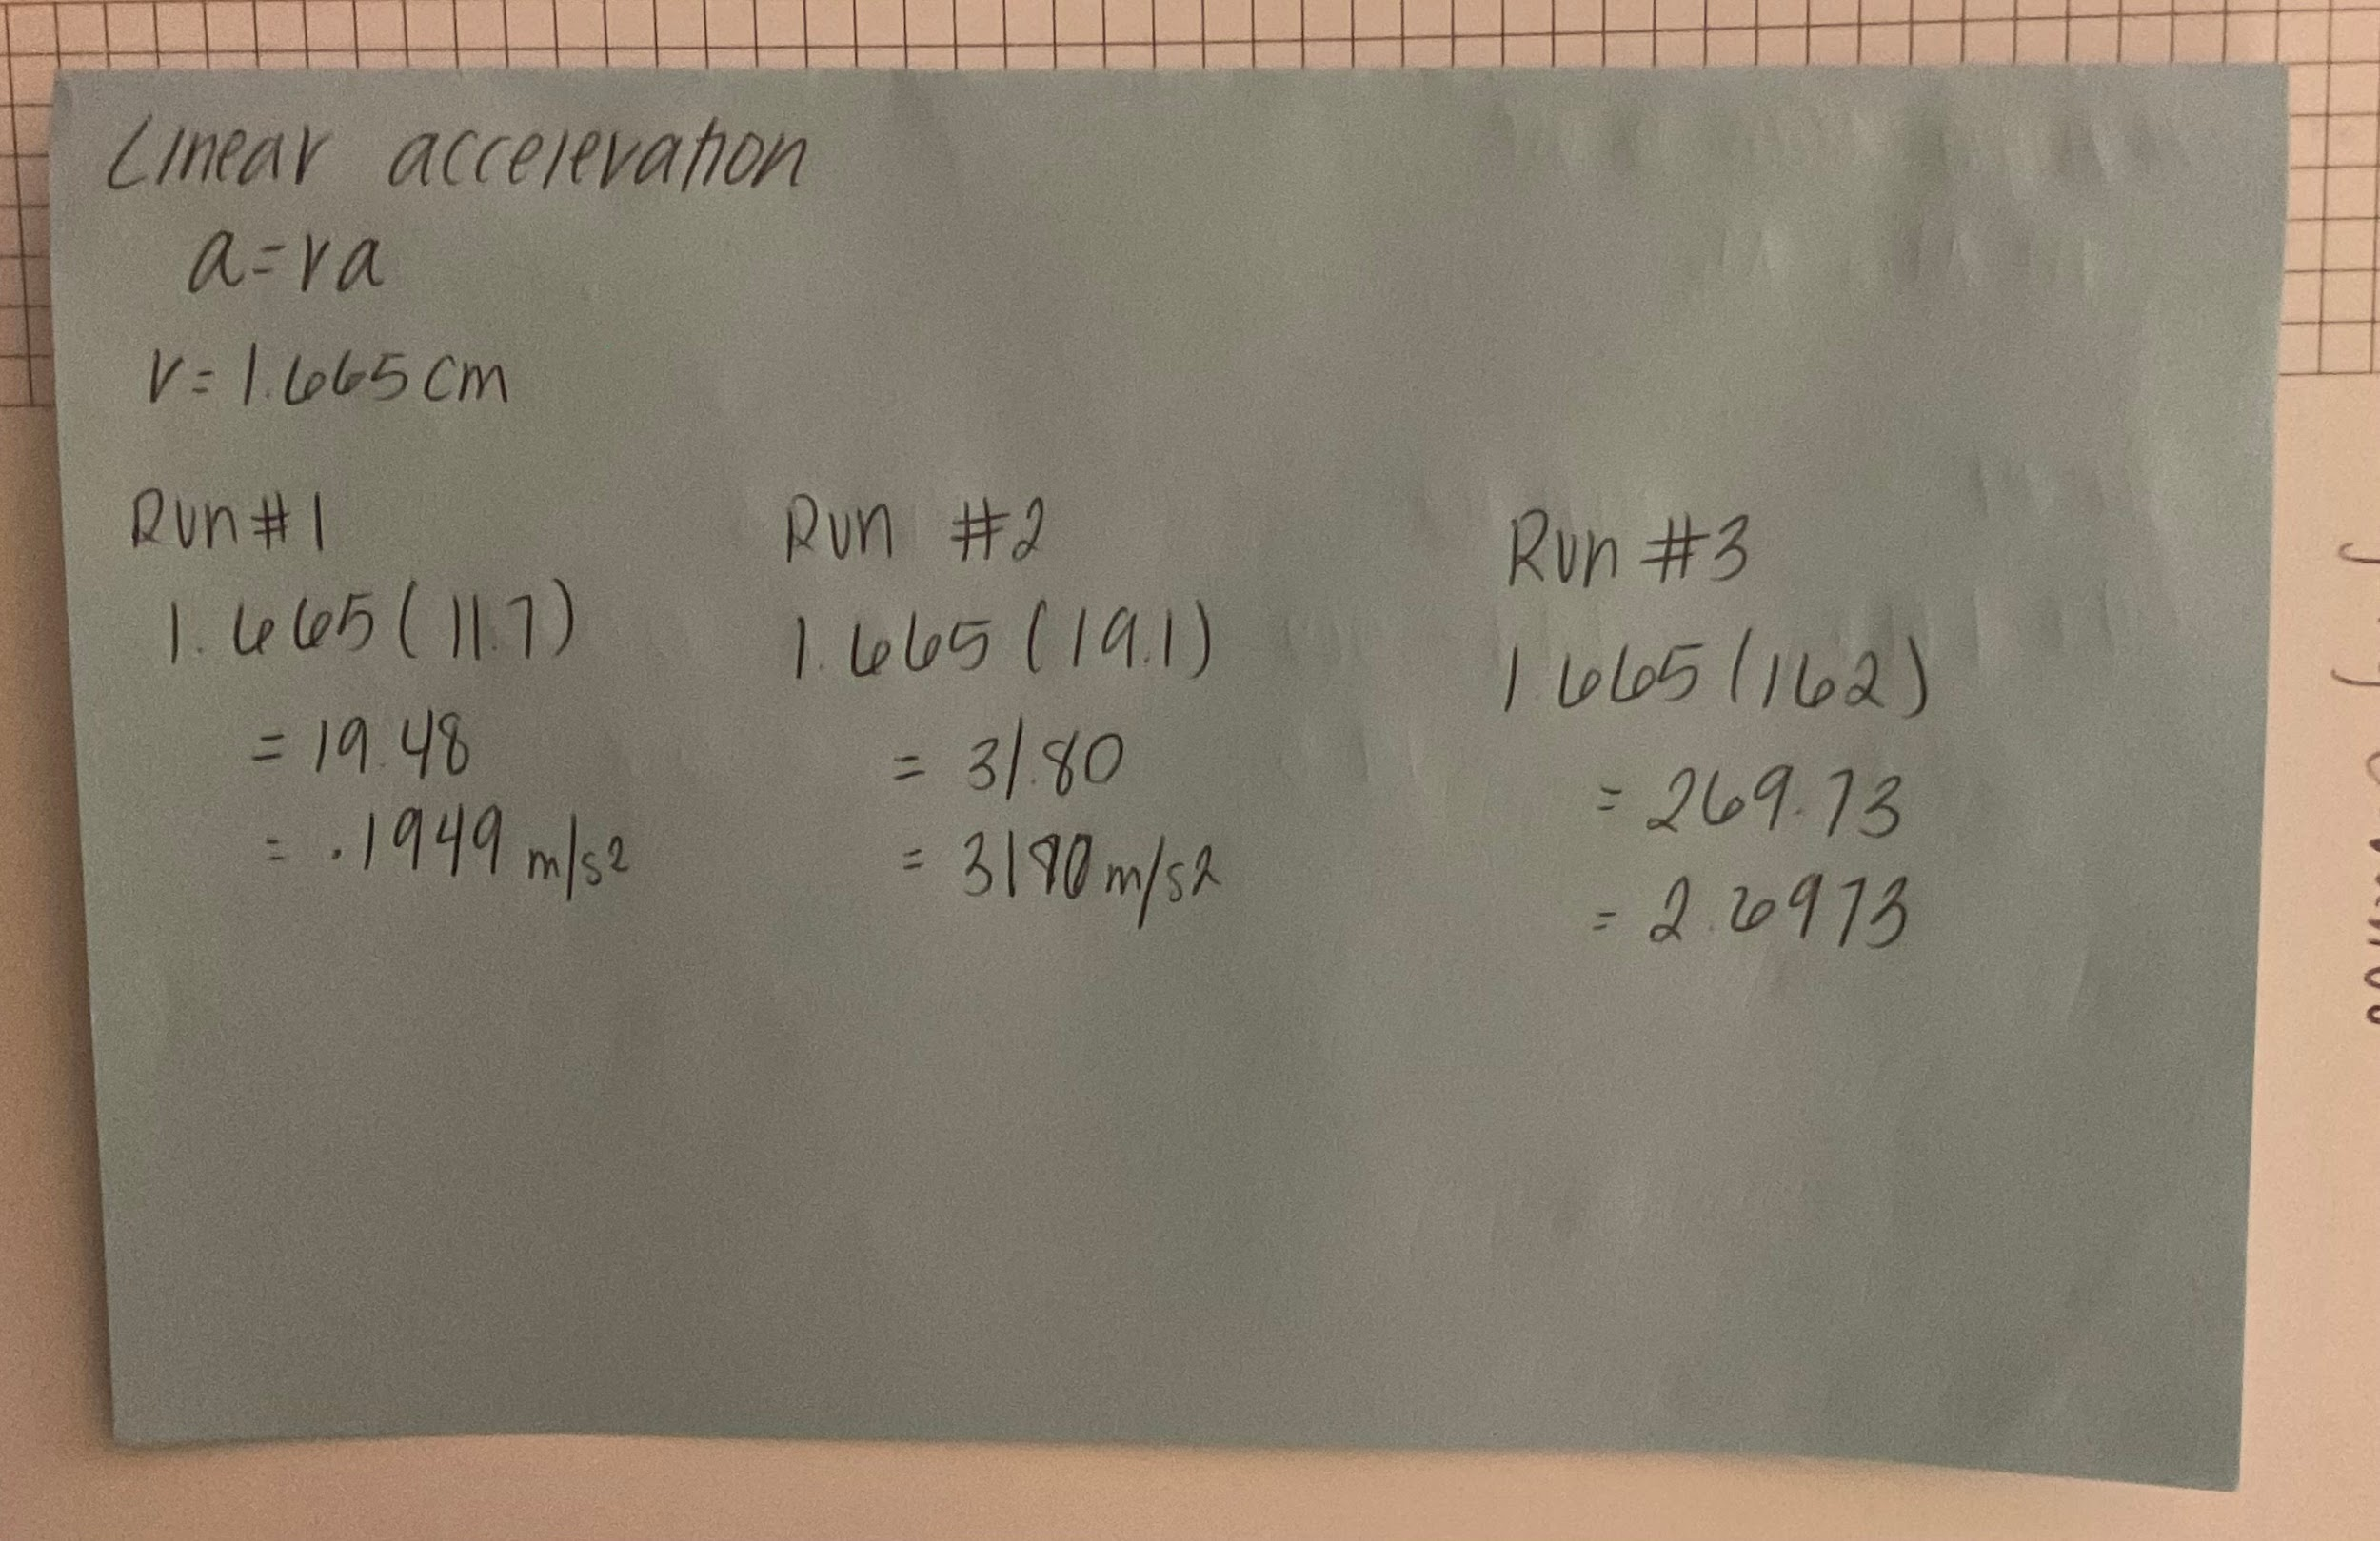 Linear acceleration
a=ra
r=1.665cm
Run#1
1.665(11.7)
=19.48
=.1949 m/s2
Run #2
1.665(19.1)
=31.80
=3180 m/s2
Run #3
1.665(162)
=269.73
=2.6973